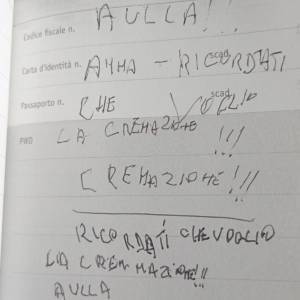 AULLA!!
Codice fiscale n.
Carta d'identità n. ANNA - RICORDATI scad.
Passaporto n. CHE VOGLIO scad.
PWD LA CREMAZIONE
!!!
CREMAZIONE!!!
RICORDATI CHE VOGLIO
LA CREMAZIONE!!
AULLA